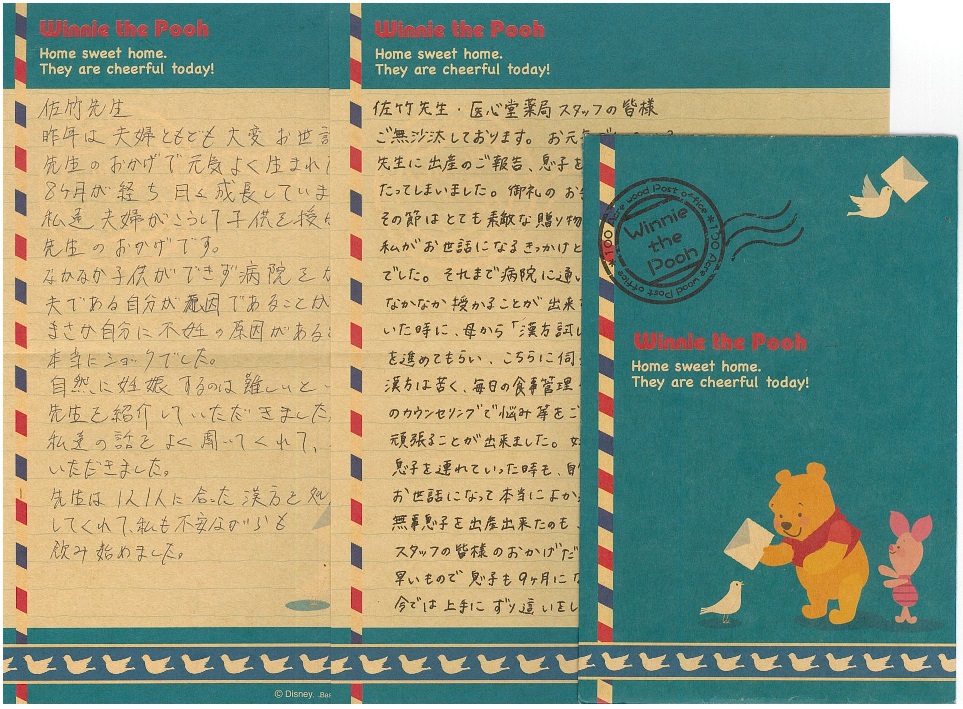 Winnie the Pooh
Home sweet home.
They are cheerful today!
佐竹先生
昨年は夫婦ともども大変お世話
先生のおかげで元気よく生まれ
8ヶ月が経ち日々成長していま
私達夫婦がこうして子供を授
先生のおかげです。
なかなか子供ができず病院を
夫である自分が原因であることが
まさか自分に不妊の原因がある
本当にショックでした。
自然に妊娠するのは難しいと
先生を紹介していただきました
私達の話をよく聞いてくれて、
いただきました。
先生は1人1人に合った漢方を処
してくれて、私も不安ながらも
飲み始めました。
© Disney.
Winnie the Pooh
Home sweet home.
They are cheerful today!
佐竹先生・医心堂薬局スタッフの皆様
ご無沙汰しております。お元気
先生に出産のご報告、息子を
たってしまいました。御礼のお
その節はとても素敵な贈り物
私がお世話になるきっかけと
でした。それまで病院に通い
なかなか授かることが出来
いた時に、母から「漢方試し
を進めてもらい、こちらに伺
漢方は苦く、毎日の食事管理
のカウンセリングで悩み等をご
頑張ることが出来ました。
息子を連れていった時も、自
お世話になって本当によか
無事息子を出産出来たのも、
スタッフの皆様のおかげだ
早いもので息子も9ヶ月にな
今では上手にずり這いをし
100 Acre wood Post office
Winnie
the
Pooh
Winnie the Pooh
Home sweet home.
They are cheerful today!